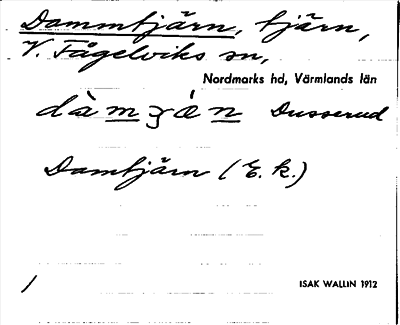 Dammtjärn, tjärn,
V. Fågelviks sn,
Nordmarks hd, Värmlands län
Dusserud
Damtjärn (E. k.)
/
ISAK WALLIN 1912